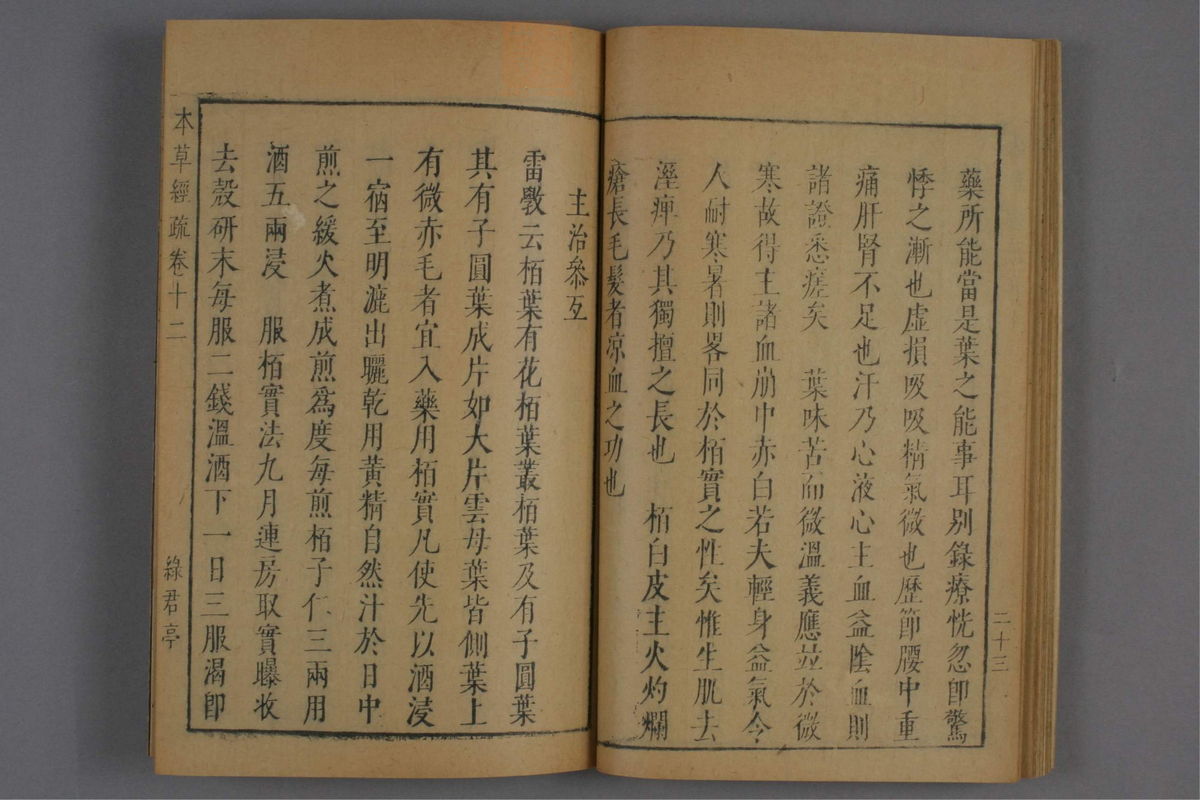 藥所能當是葉之能事耳别錄療恍忽卽驚
悸之漸也虛損吸吸精氣微也歷節腰中重
痛肝腎不足也汗乃心液心主血益陰血則
諸證悉瘥矣　葉味苦而微溫義應竝於微
寒故得主諸血崩中赤白若夫輕身益氣令
人耐寒暑則畧同於栢實之性矣惟生肌去
溼痺乃其獨擅之長也　栢白皮主火灼爛
瘡長毛髮者凉血之功也
二十三
主治叅互
雷斆云栢葉有花栢葉叢栢葉及有子圓葉
其有子圓葉成片如大片雲母葉皆側葉上
有微赤毛者宜入藥用栢實凡使先以酒浸
一宿至明漉出曬乾用黃精自然汁於日中
煎之緩火煮成煎爲度每煎栢子仁三兩用
酒五兩浸　服栢實法九月連房取實曝收
去殼研末每服二錢溫酒下一日三服渴卽
本草經疏卷十二
綠君亭